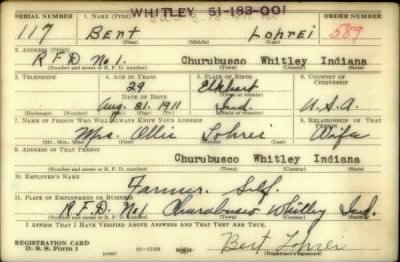 WHITLEY 51-183-001
SERIAL NUMBER 1. NAME (Print) ORDER NUMBER
117 Bert Lohrei 589
(First) (Middle) (Last)
2. ADDRESS (Print)
R.F.D. No 1. Churubusco Whitley Indiana
(Number and street or R. F. D. number) (Town) (County) (State)
3. TELEPHONE 4. AGE IN YEARS 5. PLACE OF BIRTH 6. COUNTRY OF CITIZENSHIP
29 Elkhart
DATE OF BIRTH (Town or county)
Aug. 21. 1911 Ind. U.S.A.
(Exchange) (Number) (Mo.) (Day) (Yr.) (State or country)
7. NAME OF PERSON WHO WILL ALWAYS KNOW YOUR ADDRESS 8. RELATIONSHIP OF THAT PERSON
Mrs. Ollie Lohrei Wife
(Mr., Mrs., Miss) (First) (Middle) (Last)
9. ADDRESS OF THAT PERSON
Churubusco Whitley Indiana
(Number and street or R. F. D. number) (Town) (County) (State)
10. EMPLOYER'S NAME
Farmer. Self.
11. PLACE OF EMPLOYMENT OR BUSINESS
R.F.D. No 1 Churubusco Whitley Ind.
(Number and street or R. F. D. number) (Town) (County) (State)
I AFFIRM THAT I HAVE VERIFIED ABOVE ANSWERS AND THAT THEY ARE TRUE.
REGISTRATION CARD
D. S. S. Form 1 Bert Lohrei
(Registrant's signature)